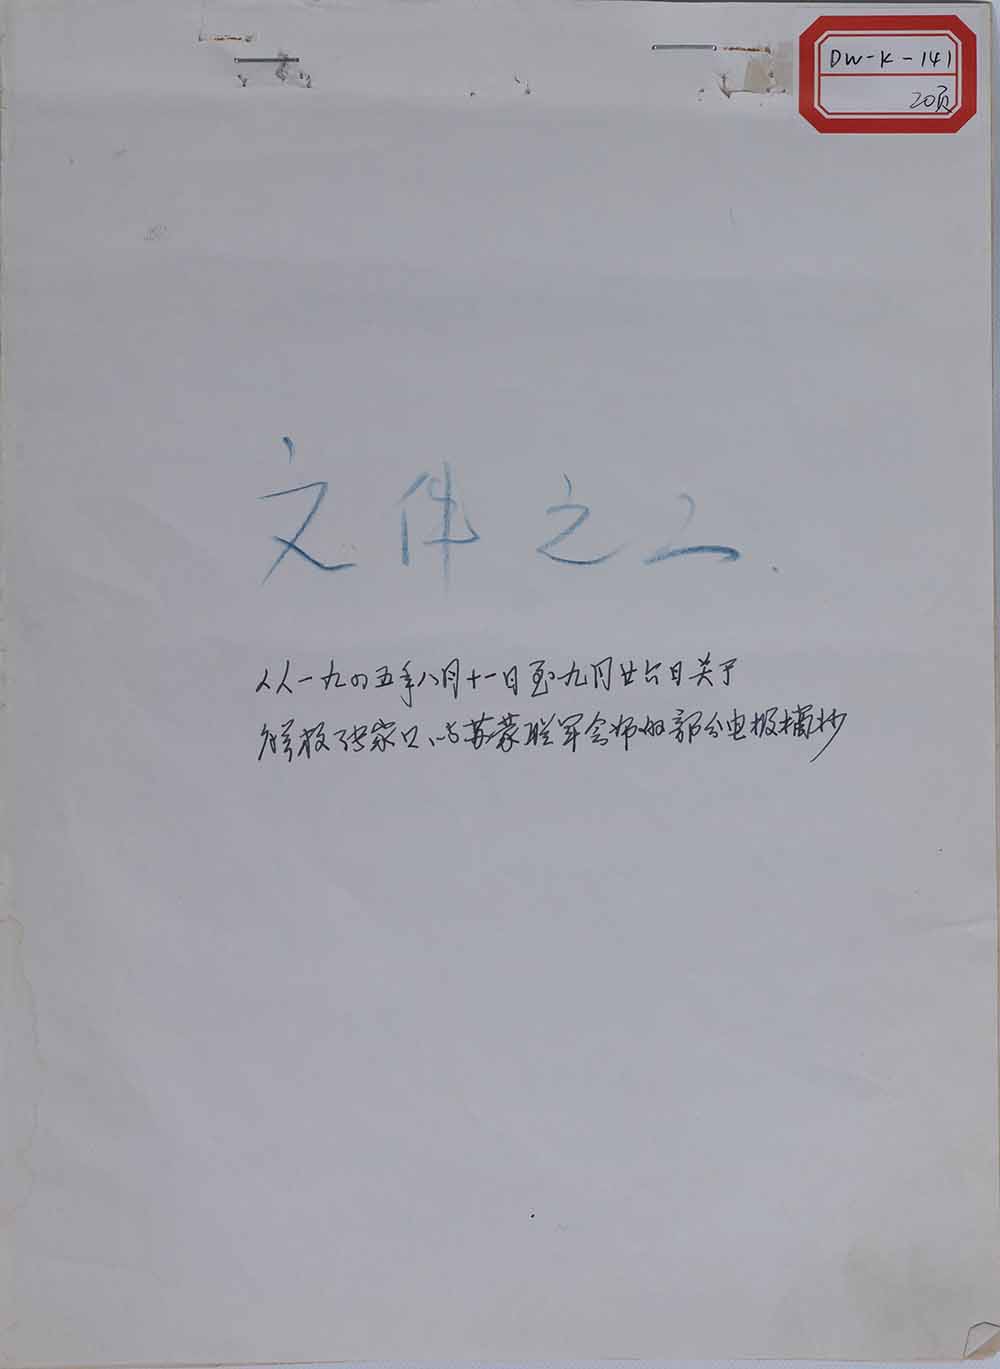 DW-K-141
20页
文件之二
从一九四五年八月十一日至九月廿六日关于
解放张家口、与苏蒙联军会师的部分电报摘抄